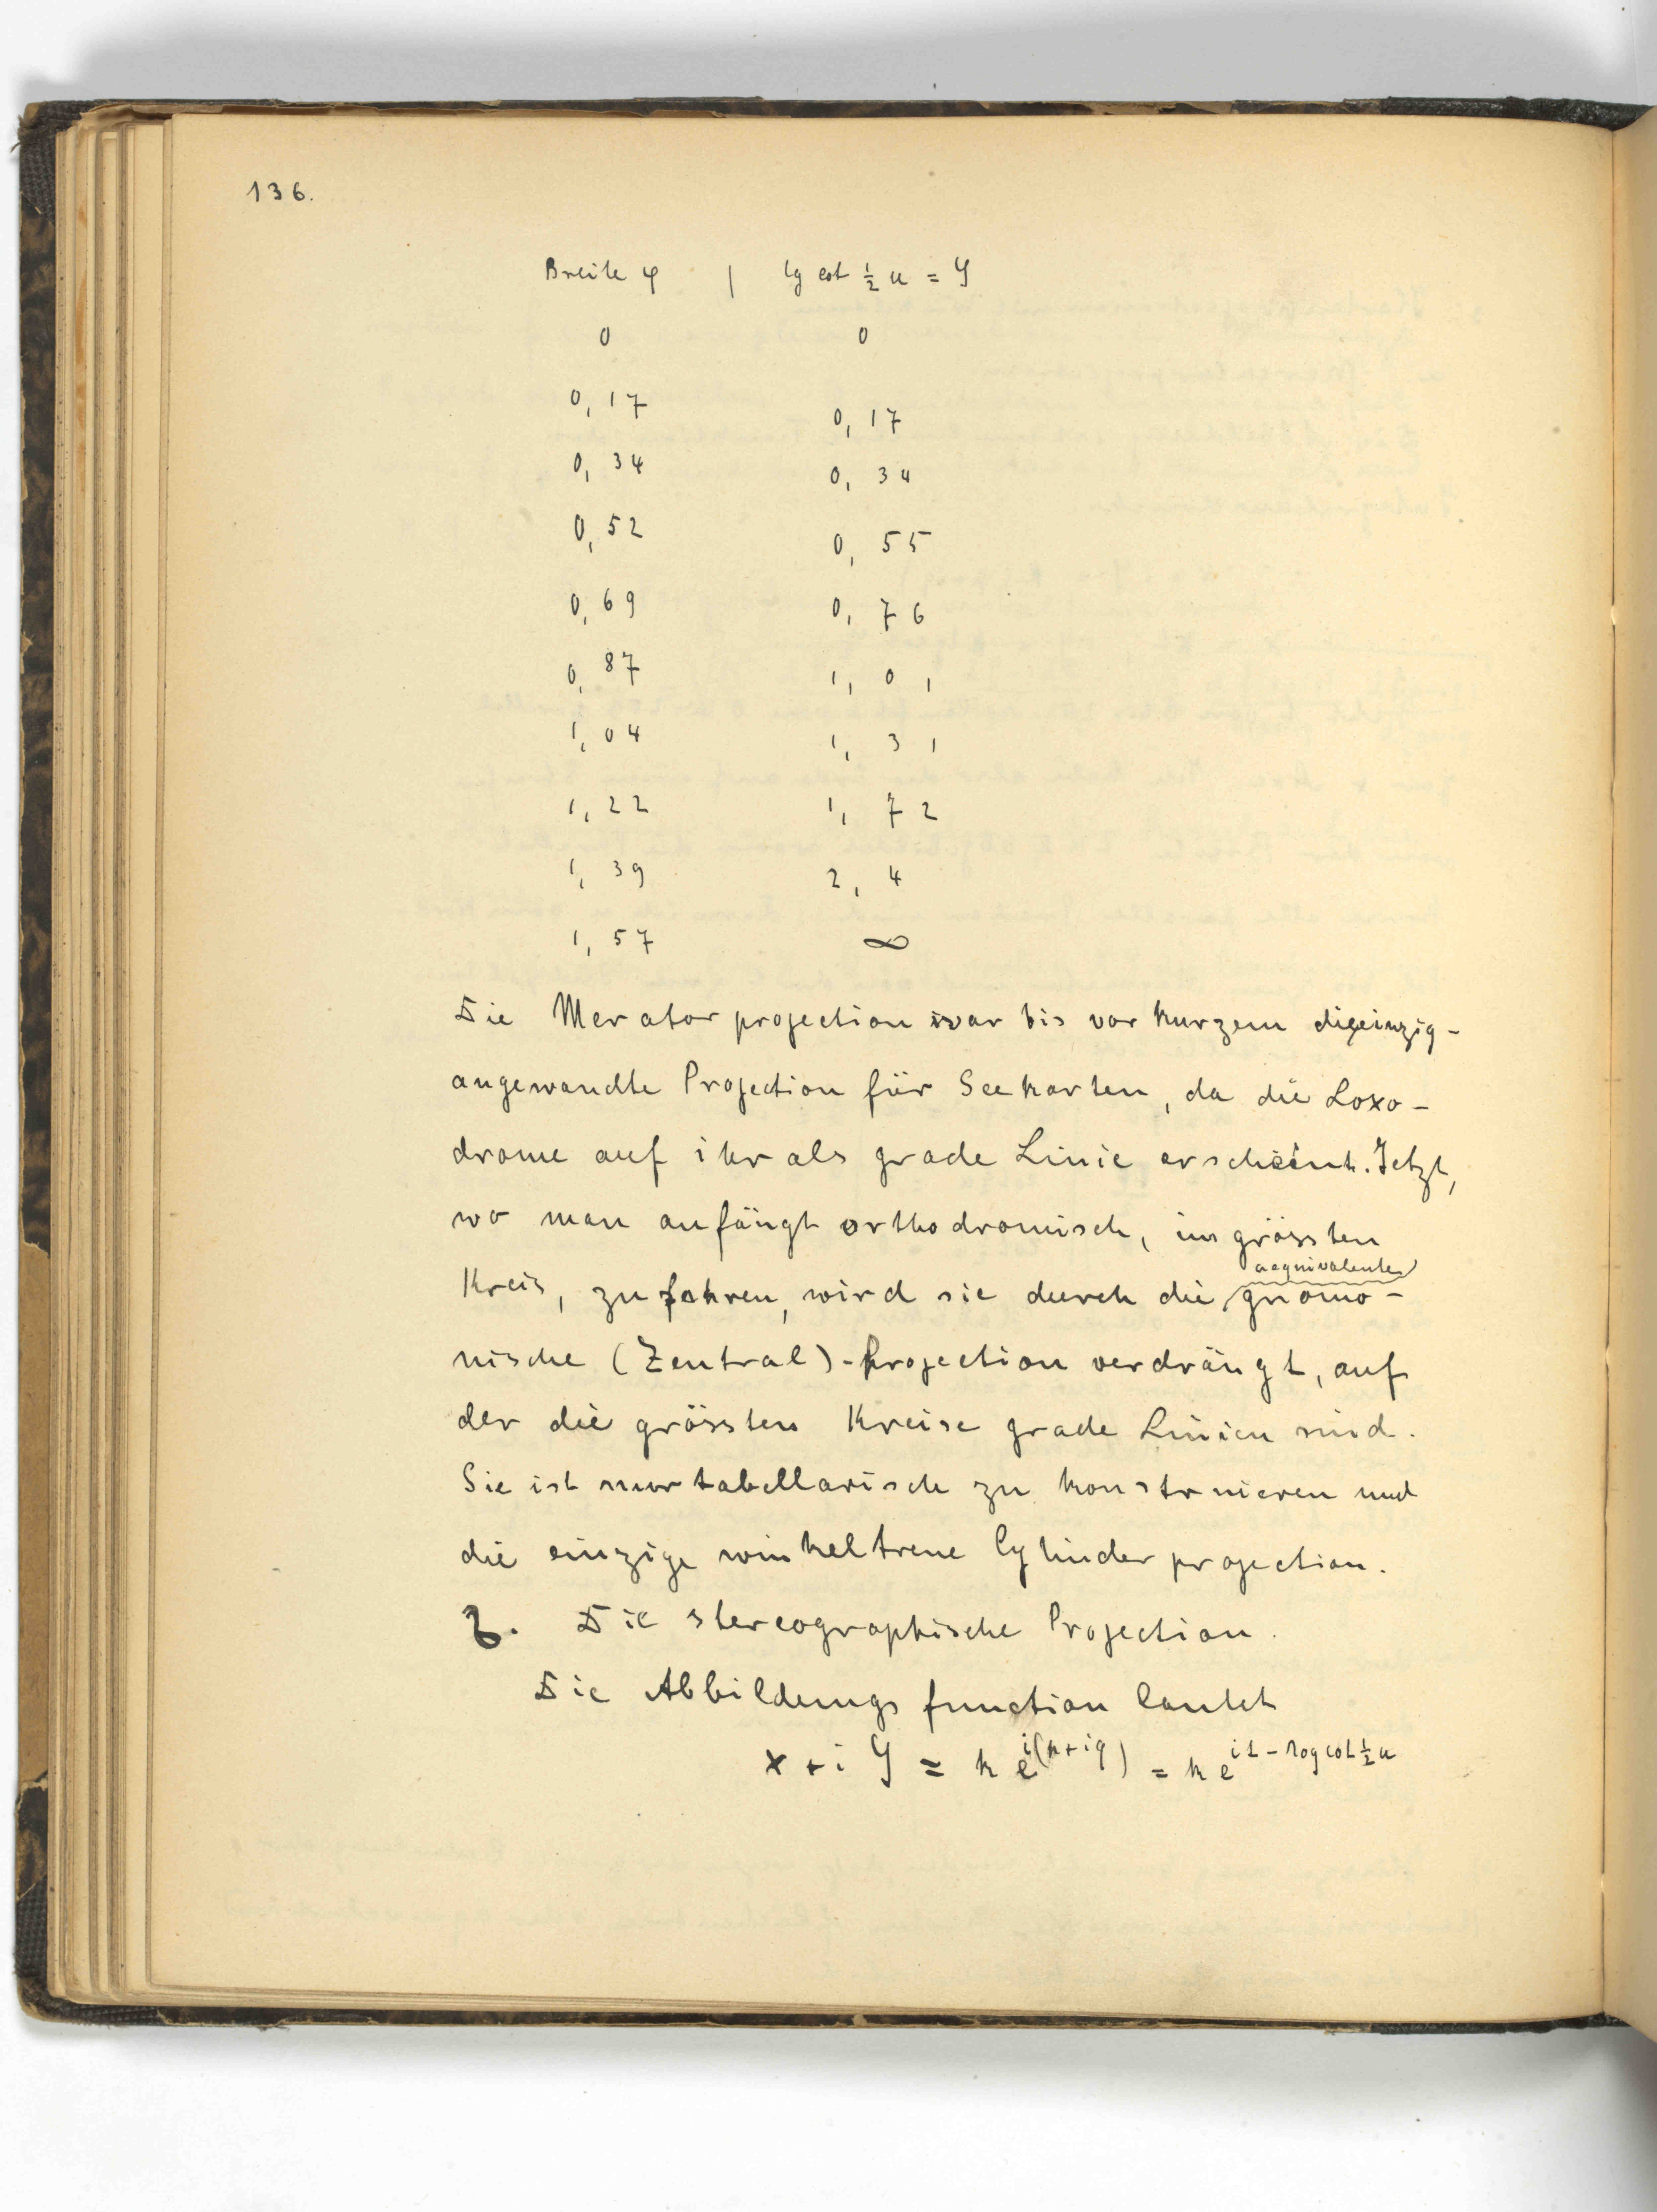 136.
Breite φ | lg cot ½ u = y
0 0
0,17 0,17
0,34 0,34
0,52 0,55
0,69 0,76
0,87 1,01
1,04 1,31
1,22 1,72
1,39 2,4
1,57 ∞
Die Meratorprojection war bis vor kurzem die einzig-
angewandte Projection für Seekarten, da die Loxo-
drome auf ihr als grade Linie erscheint. Jetzt,
wo man anfängt orthodromisch, im grössten
aequivalente
Kreis, zu fahren, wird sie durch die gnomo-
nische (Zentral)-Projection verdrängt, auf
der die grössten Kreise grade Linien sind.
Sie ist nur tabellarisch zu konstruieren und
die einzige winkeltreue Cylinderprojection.
Die stereographische Projection.
Die Abbildungsfunction lautet
x + i y = k e^{i(p+iq)} = k e^{it - log cot ½ u}